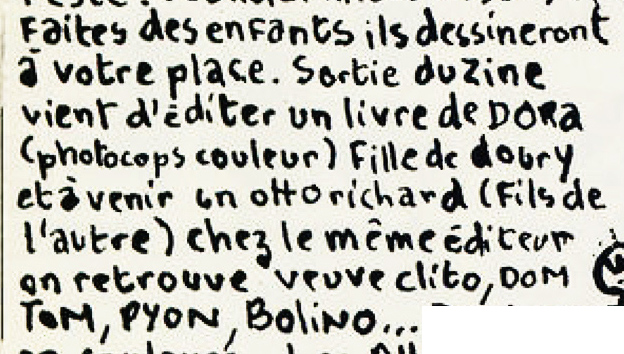 Faites des enfants ils dessineront
à votre place. Sortie du zine
vient d'éditer un livre de DORA
(photocops couleur) Fille de doury
et à venir un otto richard (Fils de
l'autre) chez le même éditeur
on retrouve veuve clito, DOM
TOM, PYON, BoliNO...